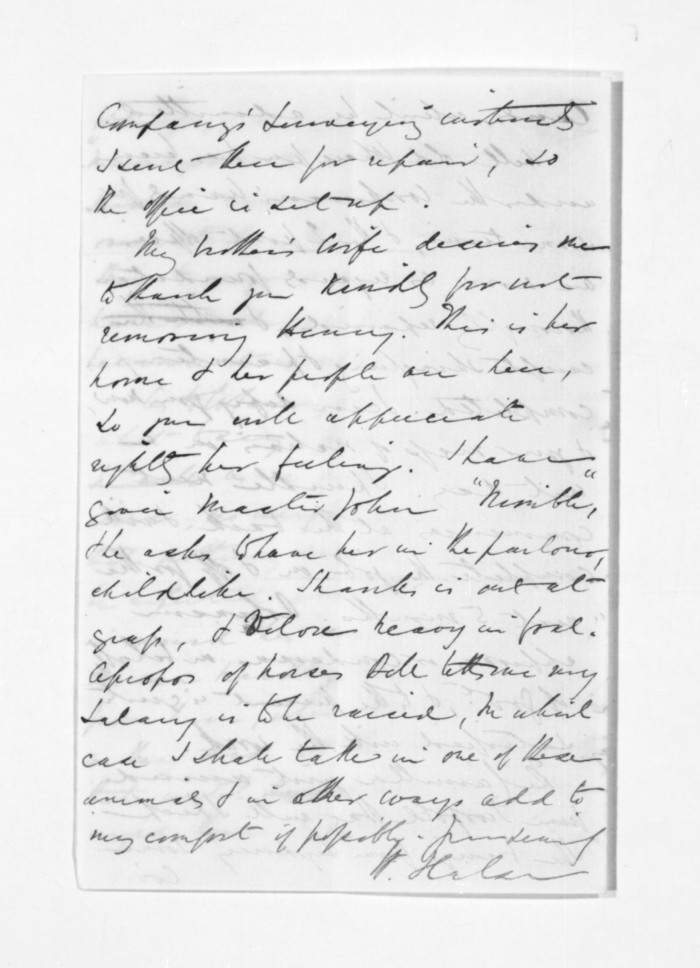 Company's Surveying instruments
I sent them for repair, so
the office is set up.
My brother's wife desires me
to thank you kindly for not
removing Henry. This is her
home & her people are here,
so you will appreciate
rightly her feeling. I have
given Master John "Nimble,"
& he asks to have her in the parlour,
childlike. Shanks is out at
grass, & heavy in foal.
Apropos of horses Dell tells me my
Salary is to be raised, in which
case I shall take in one of these
animals & in other ways add to
my comfort if possible.